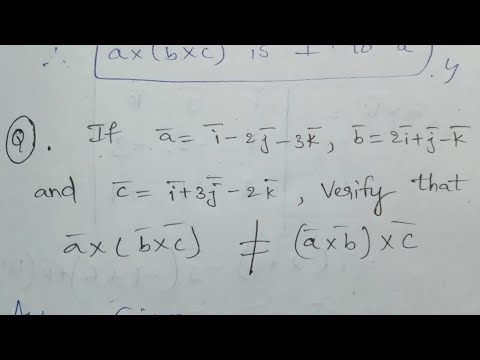 ∴ a×(b×c) is ⊥ to a
Q. If a̅ = i̅ - 2j̅ - 3k̅, b̅ = 2i̅ + j̅ - k̅
and c̅ = i̅ + 3j̅ - 2k̅, verify that
a̅ × (b̅ × c̅) ≠ (a̅ × b̅) × c̅